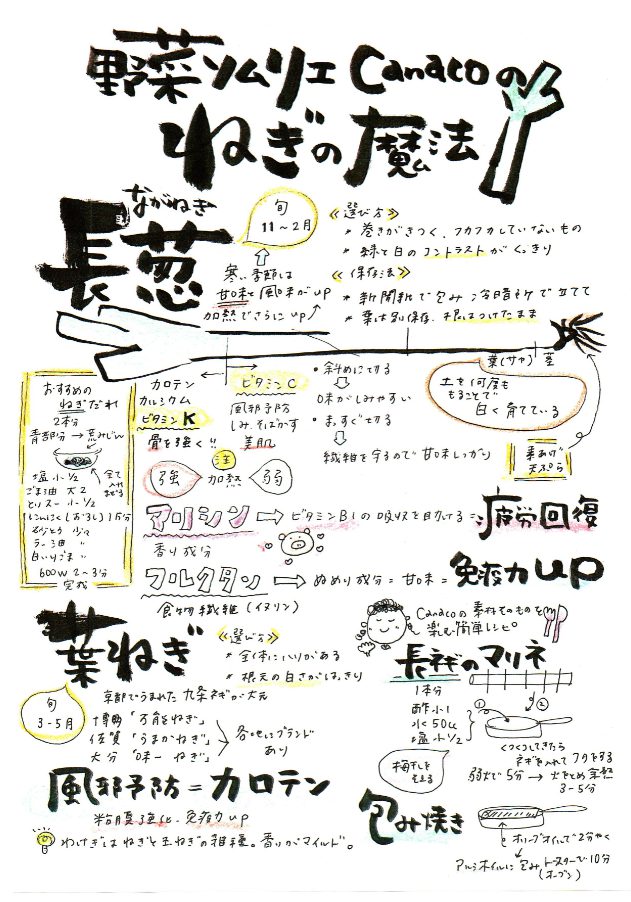 野菜ソムリエ Canacoの
ねぎの魔法
ながねぎ
長葱
旬
11～2月
寒い季節は
甘味と風味がup
加熱でさらにup
≪選び方≫
* 巻きがきつく、フカフカしていないもの
* 緑と白のコントラストがくっきり
≪保存法≫
* 新聞紙で包み 冷暗所で立てて
* 葉は別保存、根はつけたまま
葉(サヤ) 茎
土を何度も
もることで
白く育てている
素あげ
天ぷら
おすすめの
ねぎだれ
2本分
青部分→荒みじん
塩小1/2
ごま油 大2
とりスープ 小1/2
にんにく(おろし)1片分
さとう 少々
ラー油 〃
白いりごま 〃
全て入れまぜる
600W 2～3分
完成
カロテン
カルシウム
ビタミンK
骨を強く!!
ビタミンC
風邪予防
しみ、そばかす
美肌
・斜めに切る
味がしみやすい
・まっすぐ切る
繊維を守るので甘味しっかり
注
強 加熱 弱
アリシン ⇒ ビタミンB1の吸収を助ける = 疲労回復
香り成分
フルクタン ⇒ ぬめり成分 = 甘味 = 免疫力up
食物繊維(イヌリン)
葉ねぎ
≪選び方≫
* 全体にハリがある
* 根元の白さがはっきり
旬
3-5月
京都でうまれた九条ネギが大元
博多「万能ねぎ」
佐賀「うまかねぎ」
大分「味一ねぎ」
各地にブランドあり
風邪予防=カロテン
粘膜強化、免疫力up
わけぎはねぎと玉ねぎの雑種。香りがマイルド。
Canacoの素材そのものを
楽しむ簡単レシピ。
長ネギのマリネ
1本分
酢小1
水50cc
塩小1/2
①
②
梅干しを
ぐつぐつしてきたら
ネギを入れてフタをする
弱火で5分→火をとめ余熱
3-5分
包み焼き
オリーブオイルで2分やく
アルミホイルに包みトースターで10分
(オーブン)